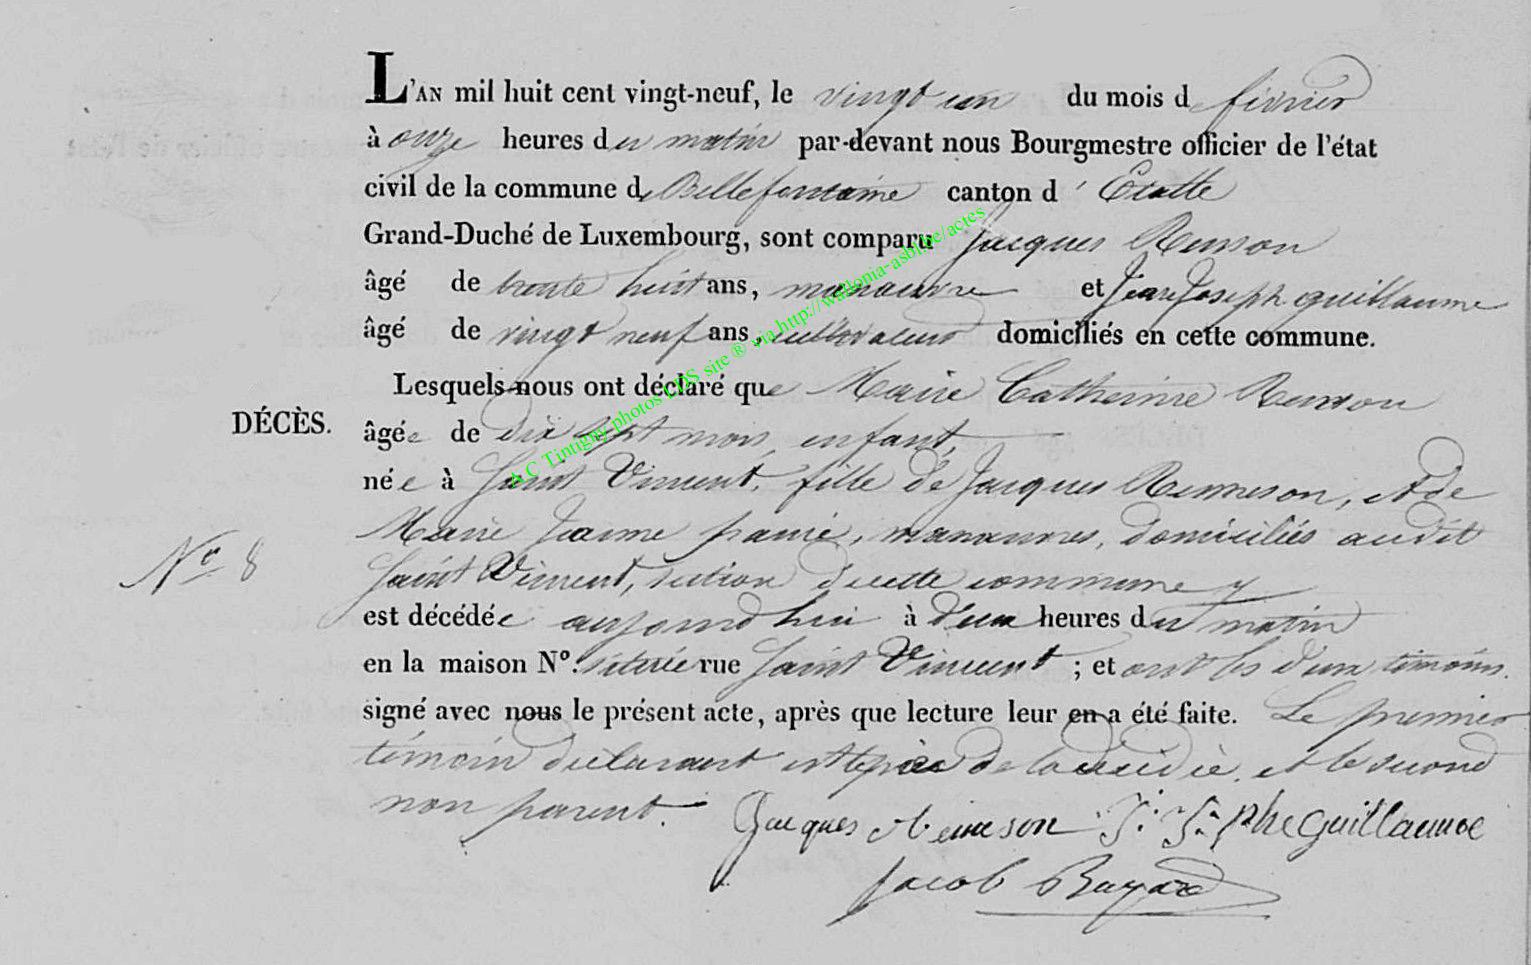 L'AN mil huit cent vingt-neuf, le vingt un du mois de fevrier
à onze heures du matin par-devant nous Bourgmestre officier de l'état
civil de la commune de Bellefontaine canton d' Etalle
Grand-Duché de Luxembourg, sont comparu Jacques Renson
âgé de trente huit ans, manoeuvre et Jean Joseph guillaume
âgé de vingt neuf ans, cultivateur domiciliés en cette commune.
Lesquels nous ont déclaré que Marie Catherine Renson
DÉCÈS. âgée de dix sept mois, enfant,
née à Saint Vincent, fille de Jacques Renneson, et de
Marie Jeanne, manœuvres, domiciliés audit
N° 8 Saint Vincent, section de cette commune y
est décédée aujourd'hui à deux heures du matin
en la maison N°. située rue Saint Vincent ; et ont les deux témoins
signé avec nous le présent acte, après que lecture leur en a été faite. Le premier
témoin déclarant est le père de la décédée, et le second
non parent.
Jacques Renneson J. J.phe guillaume
Jacob Bayard
A.C Tintigny photos LDS site ® via http://wallonia-asbl.be/actes